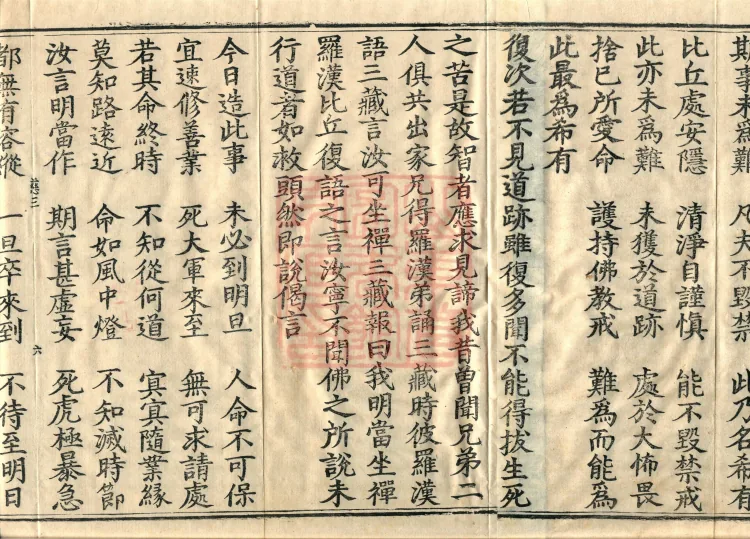 斯事未為難 凡夫不毀禁 此乃名希有
比丘處安隱 清淨自謹慎 能不毀禁戒
此亦未為難 未獲於道跡 處於大怖畏
捨已所愛命 護持佛教戒 難為而能為
此最為希有
復次若不見道跡雖復多聞不能得拔生死
之苦是故智者應求見諦我昔曾聞兄弟二
人俱共出家兄得羅漢弟誦三藏時彼羅漢
語三藏言汝可坐禪三藏報曰我明當坐禪
羅漢比丘復語之言汝寧不聞佛之所說未
行道者如救頭然即說偈言
今日造此事 未必到明旦 人命不可保
宜速修善業 死大軍來至 無可求請處
若其命終時 不知從何道 冥冥隨業緣
莫知路遠近 命如風中燈 不知滅時節
汝言明當作 期言甚虛妄 死虎極暴急
都無有容縱 一旦卒來到 不待至明日
六